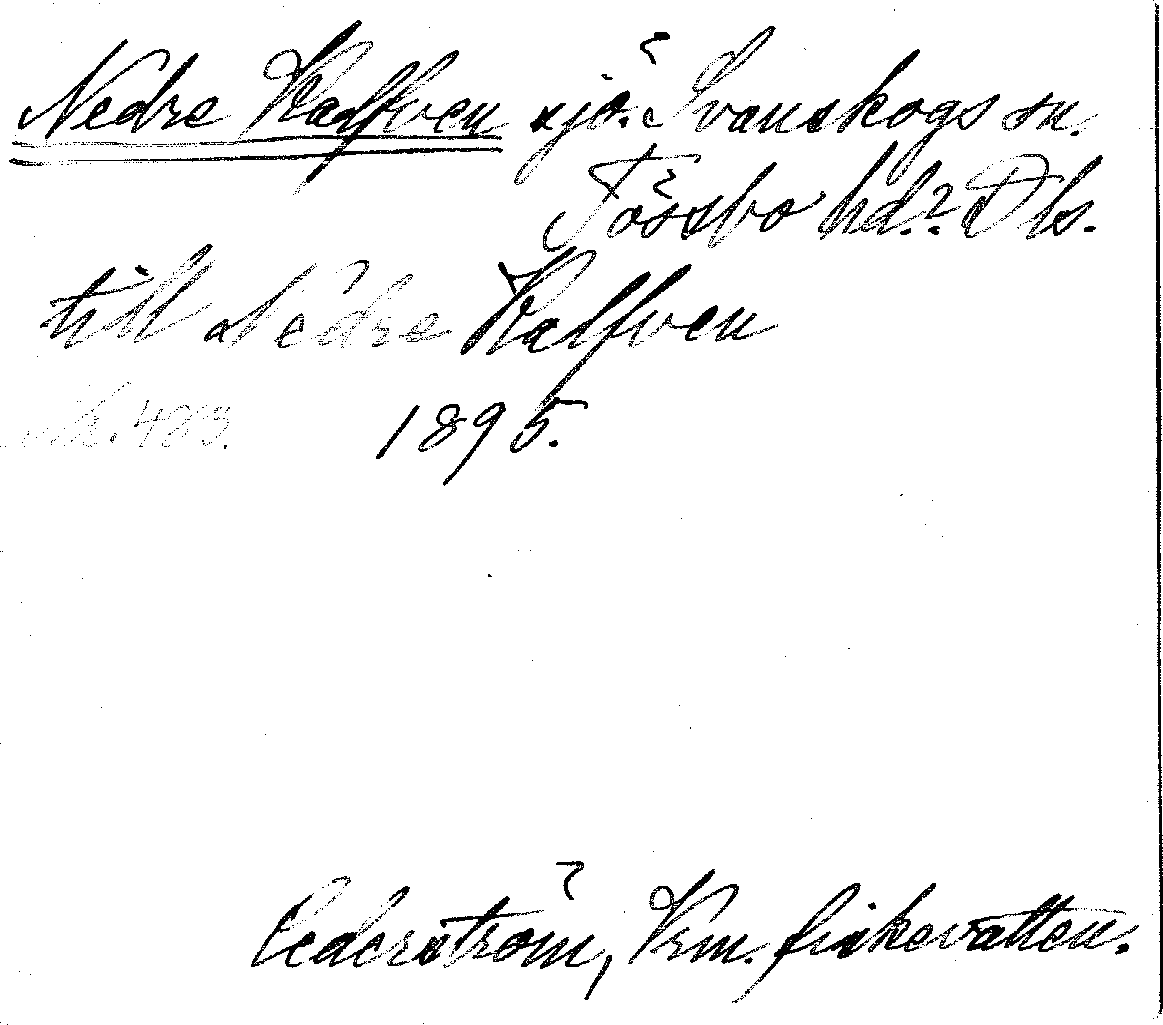 Nedre Kalfven sjö. Svanskogs sn.
Tössbo hd.? Dls.
till Nedre Kalfven
483. 1895.
Cederström, Vrm. fiskevatten.